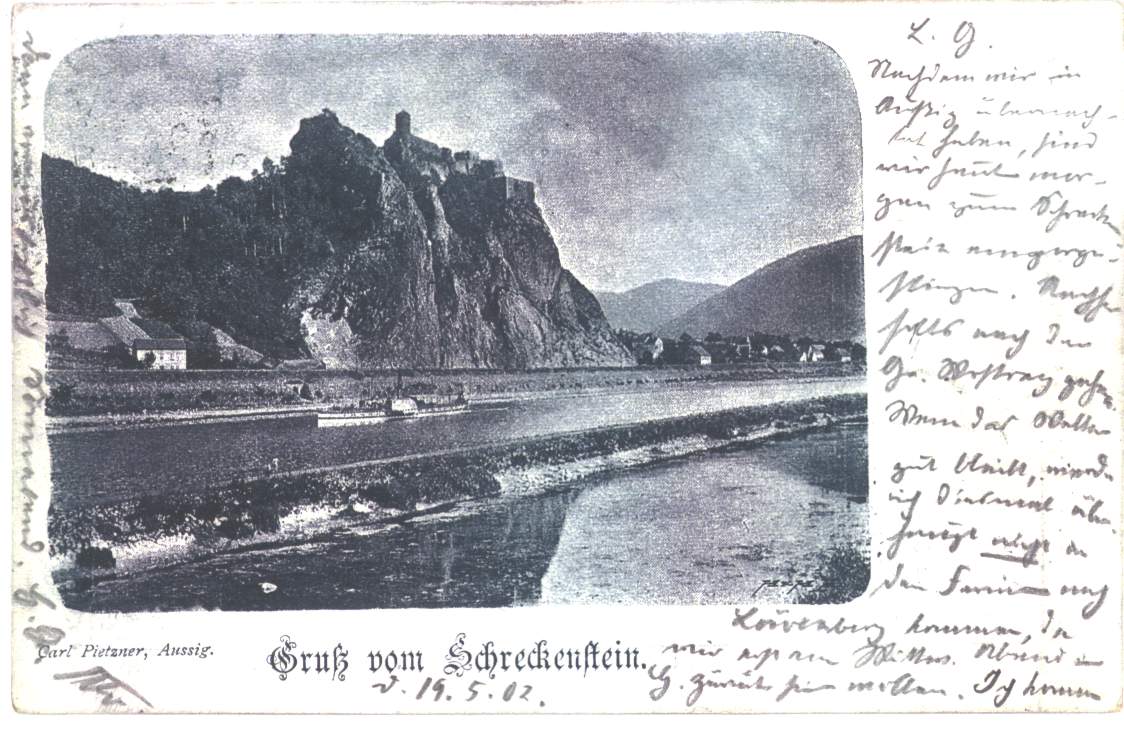 L. G.
Nachdem wir in
Aussig übernach-
tet haben, sind
wir heut mor-
gen zum Schrecken-
stein
stiegen.
nach der
Gr.
Wenn das Wetter
gut bleibt, werde
ich diesmal über-
haupt nicht in
den Ferien nach
Löwenberg kommen, da
wir erst am Abend in
G. zurück sein wollen. Ich komme
Carl Pietzner, Aussig.
Gruß vom Schreckenstein.
d. 19.5.02.